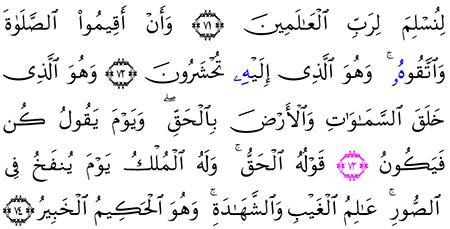 لِنُسْلِمَ لِرَبِّ ٱلْعَٰلَمِينَ ٧١ وَأَنْ أَقِيمُوا۟ ٱلصَّلَوٰةَ
وَٱتَّقُوهُۥ ۚ وَهُوَ ٱلَّذِى إِلَيْهِۦ تُحْشَرُونَ ٧٢ وَهُوَ ٱلَّذِى
خَلَقَ ٱلسَّمَٰوَٰتِ وَٱلْأَرْضَ بِٱلْحَقِّ ۖ وَيَوْمَ يَقُولُ كُن
فَيَكُونُ ٧٣ قَوْلُهُ ٱلْحَقُّ ۚ وَلَهُ ٱلْمُلْكُ يَوْمَ يُنفَخُ فِى
ٱلصُّورِ ۚ عَٰلِمُ ٱلْغَيْبِ وَٱلشَّهَٰدَةِ ۚ وَهُوَ ٱلْحَكِيمُ ٱلْخَبِيرُ ٧٤